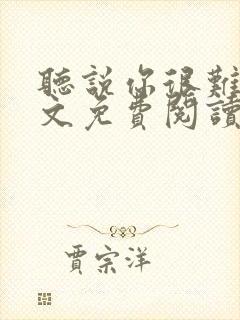 聽說你很難
文免費閱讀
賈宗洋